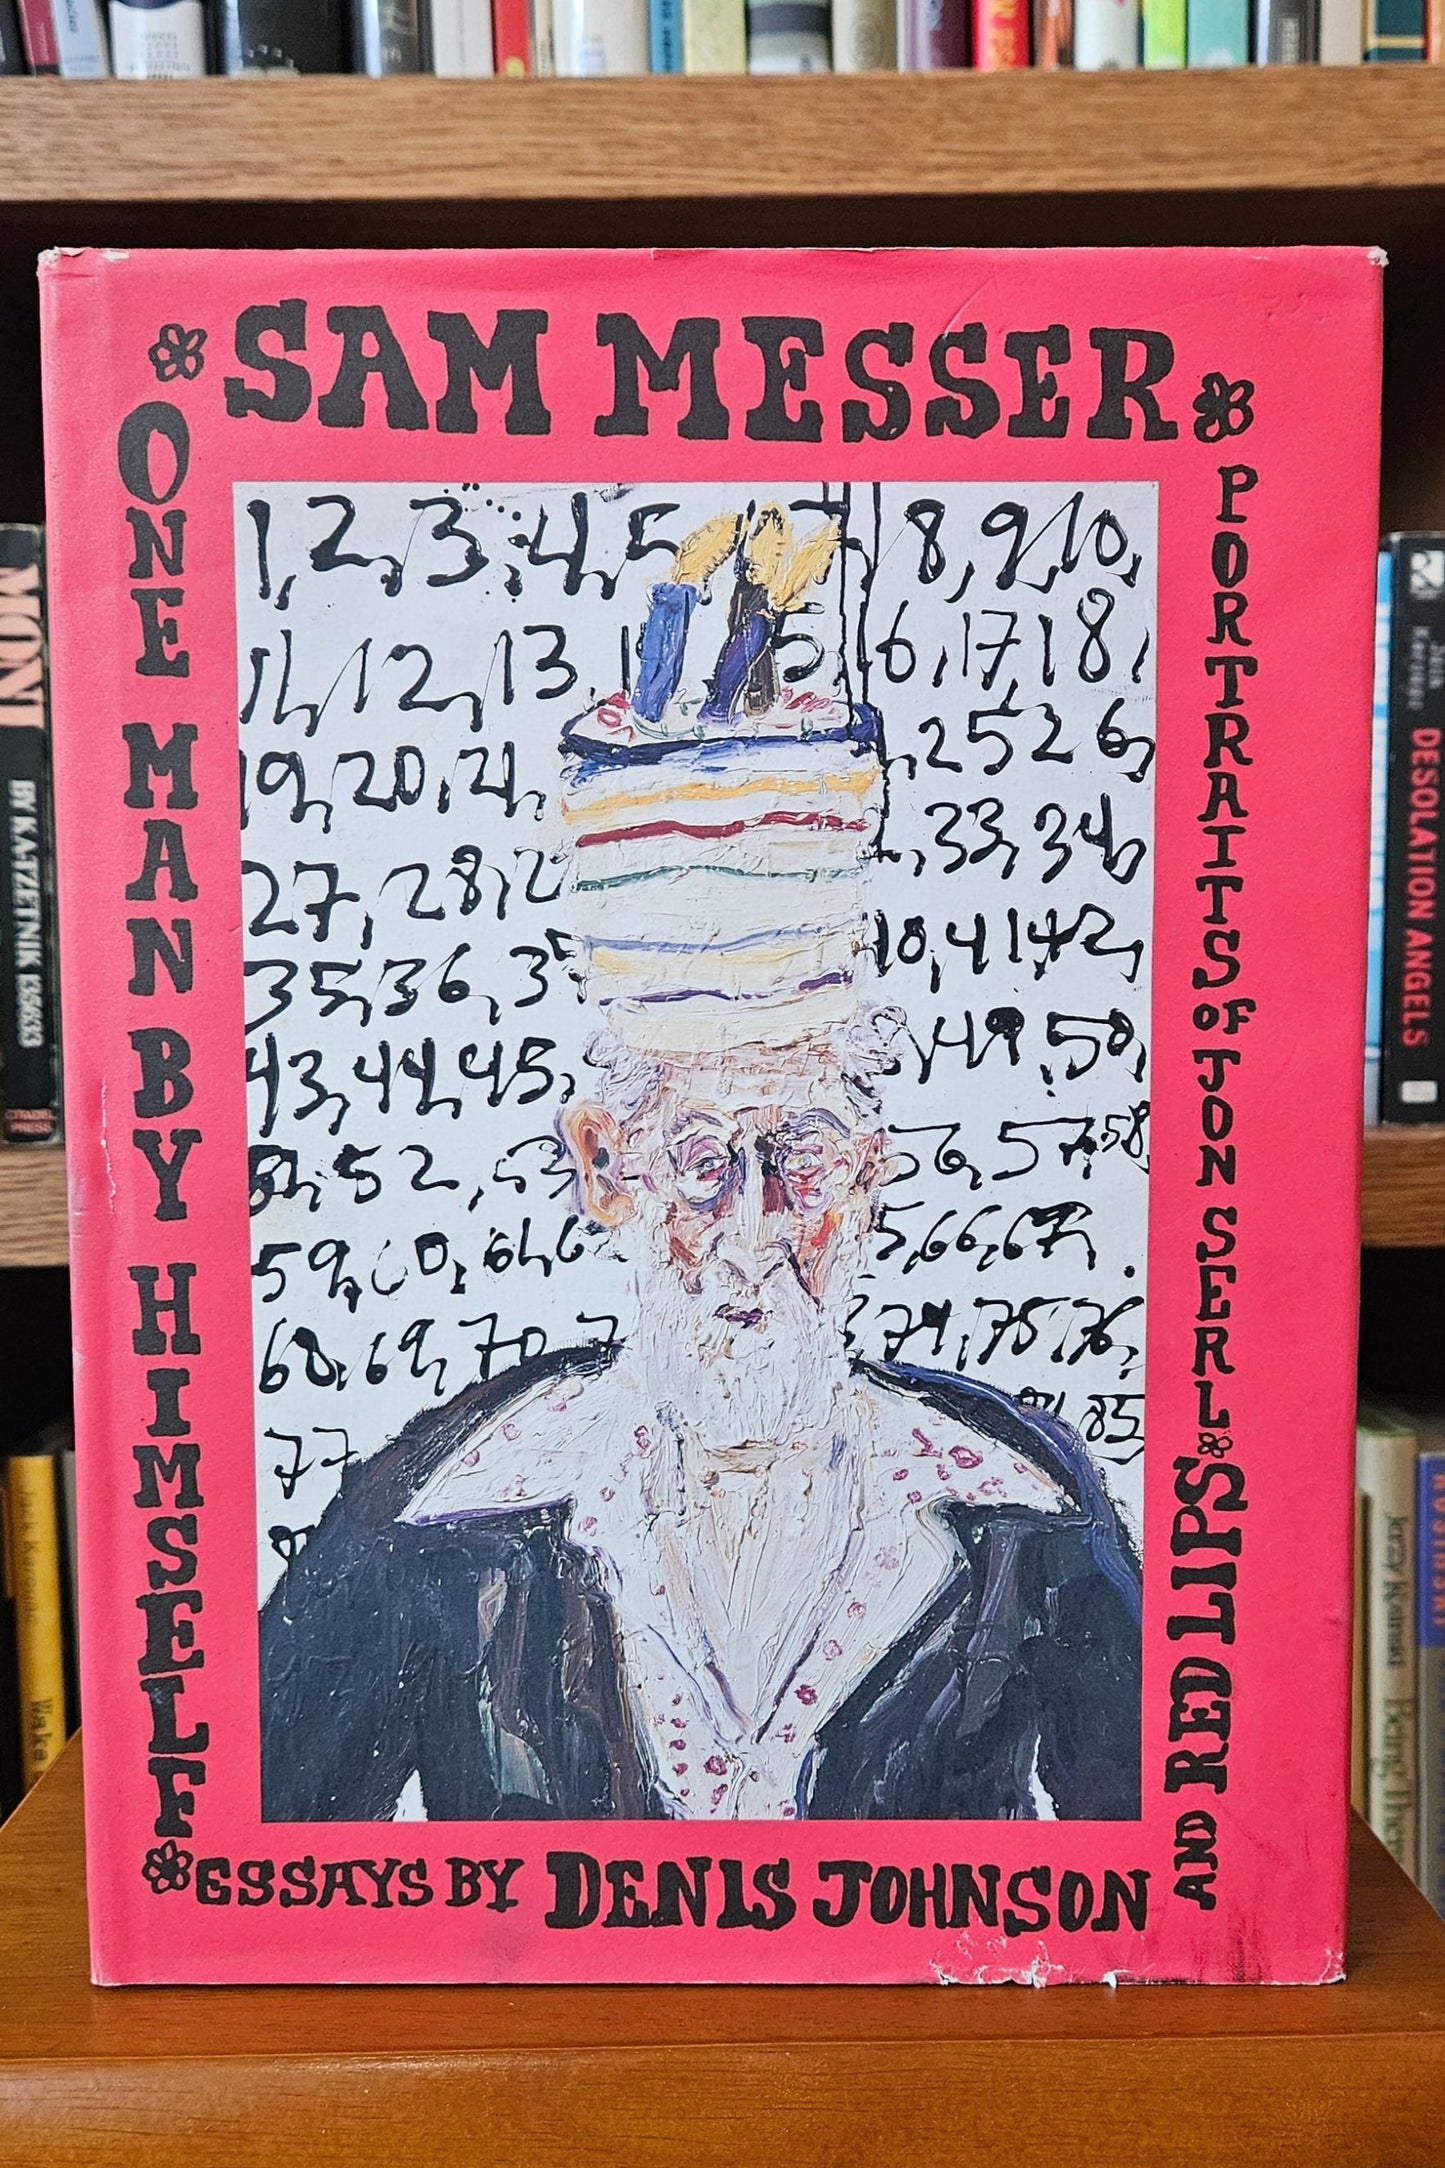 SAM MESSER
ONE MAN BY HIMSELF
PORTRAITS OF JON SERL
AND RED LIPS
ESSAYS BY DENIS JOHNSON
1, 2, 3, 4, 5 8, 9, 10,
11, 12, 13, 5 6, 17, 18,
19, 20, 21, 25, 26,
27, 28, 2 33, 34,
35, 36, 3 40, 41, 42,
43, 44, 45, 49, 50,
51, 52, 53 56, 57, 58,
59, 60, 61, 6 5, 66, 67,
68, 69, 70, 7 74, 75, 76,
77 85,
MONI
BY KA.TZETNIK 135633
CITADEL PRESS
Jack Kerouac
DESOLATION ANGELS
Jack Kerouac
Wake
Jerzy Kosinski
Being There
KOSINSKI